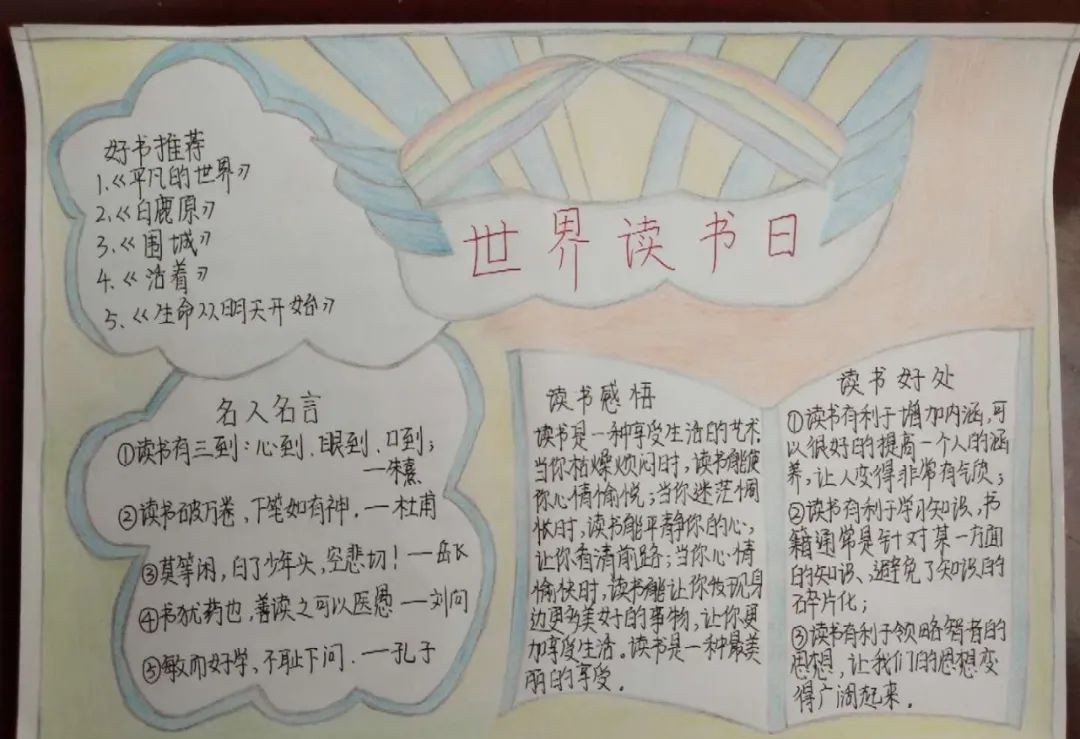 世界读书日
好书推荐
1.《平凡的世界》
2.《白鹿原》
3.《围城》
4.《活着》
5.《生命从明天开始》
名人名言
①读书有三到：心到、眼到、口到；
—朱熹
②读书破万卷，下笔如有神.—杜甫
③莫等闲，白了少年头，空悲切！—岳飞
④书犹药也，善读之可以医愚—刘向
⑤敏而好学，不耻下问.—孔子
读书感悟
读书是一种享受生活的艺术.
当你枯燥烦闷时，读书能使
你心情愉悦；当你迷茫惆
怅时，读书能平静你的心，
让你看清前路；当你心情
愉快时，读书能让你发现身
边更多美好的事物，让你更
加享受生活。读书是一种最美
丽的享受。
读书好处
①读书有利于增加内涵，可
以很好的提高一个人的涵
养，让人变得非常有气质；
②读书有利于学习知识，书
籍通常是针对某一方面
的知识、避免了知识的
碎片化；
③读书有利于领略智者的
思想，让我们的思想变
得广阔起来.